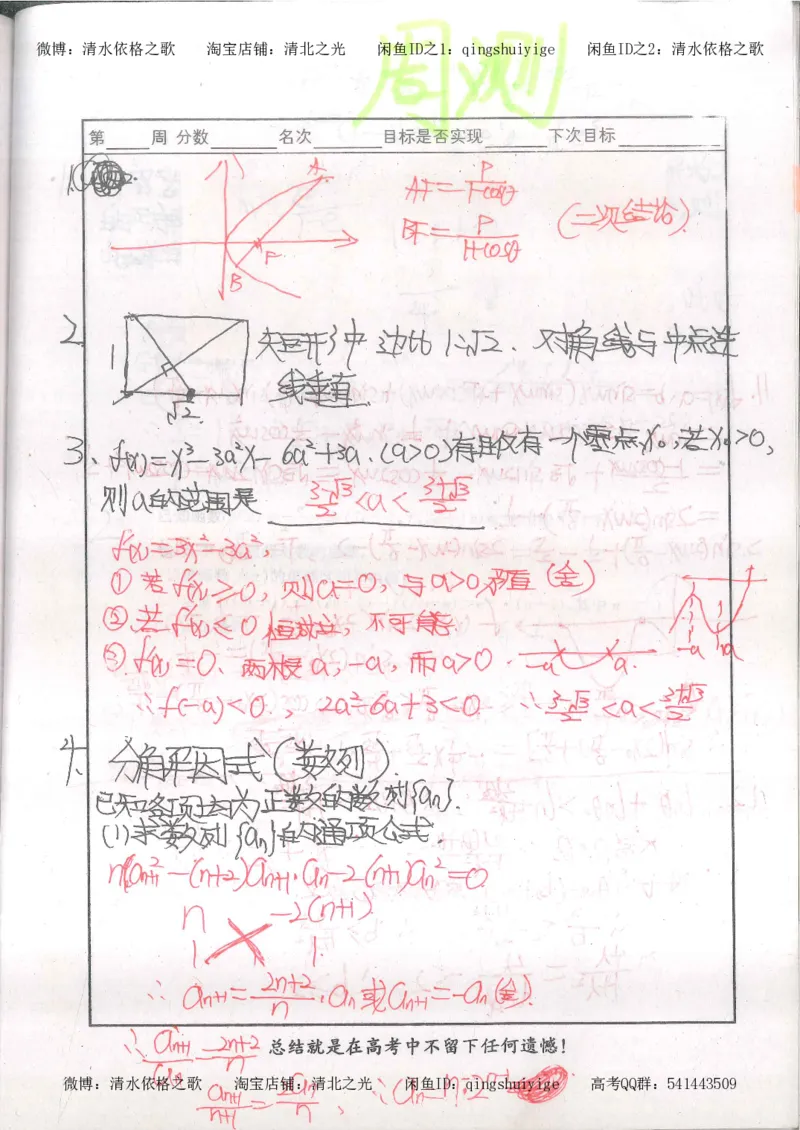 微博:清水依格之歌 淘宝店铺:清北之光 闲鱼ID之1:qingshuiyige 闲鱼ID之2:清水依格之歌
周测
第____周 分数______名次______目标是否实现______下次目标__________
1.
A
F
B
AF=P/(1-cosθ)
BF=P/(1+cosθ)
(二次结论).
2.
1
√2
矩形中边比1:√2.对角线与中点连
线垂直.
3、f(x)=x³-3a²x-6a²+3a.(a>0)有且仅有一个零点x₀,若x₀>0,
则a的范围是 (3-√3)/2<a<(3+√3)/2
f'(x)=3x²-3a².
①若f'(x)≥0,则a=0,与a>0矛盾(舍)
②若f'(x)≤0恒成立,不可能.
③f'(x)=0.两根a,-a,而a>0.
-a a
-a a
∴f(-a)<0.,2a²-6a+3<0 ∴(3-√3)/2<a<(3+√3)/2
4、分解因式(数列).
已知各项均为正数的数列{an}.
(1)求数列{an}的通项公式.
na²n+1-(n+2)an+1·an-2(n+1)an²=0
n -2(n+1)
1 1
∴an+1=(2n+2)/n·an或an+1=-an(舍).
∴an+1/an=(2n+2)/n
总结就是在高考中不留下任何遗憾!
微博:清水依格之歌 淘宝店铺:清北之光 闲鱼ID:qingshuiyige 高考QQ群:541443509
an+1/(n+1)=2an/n,∴an=n·2